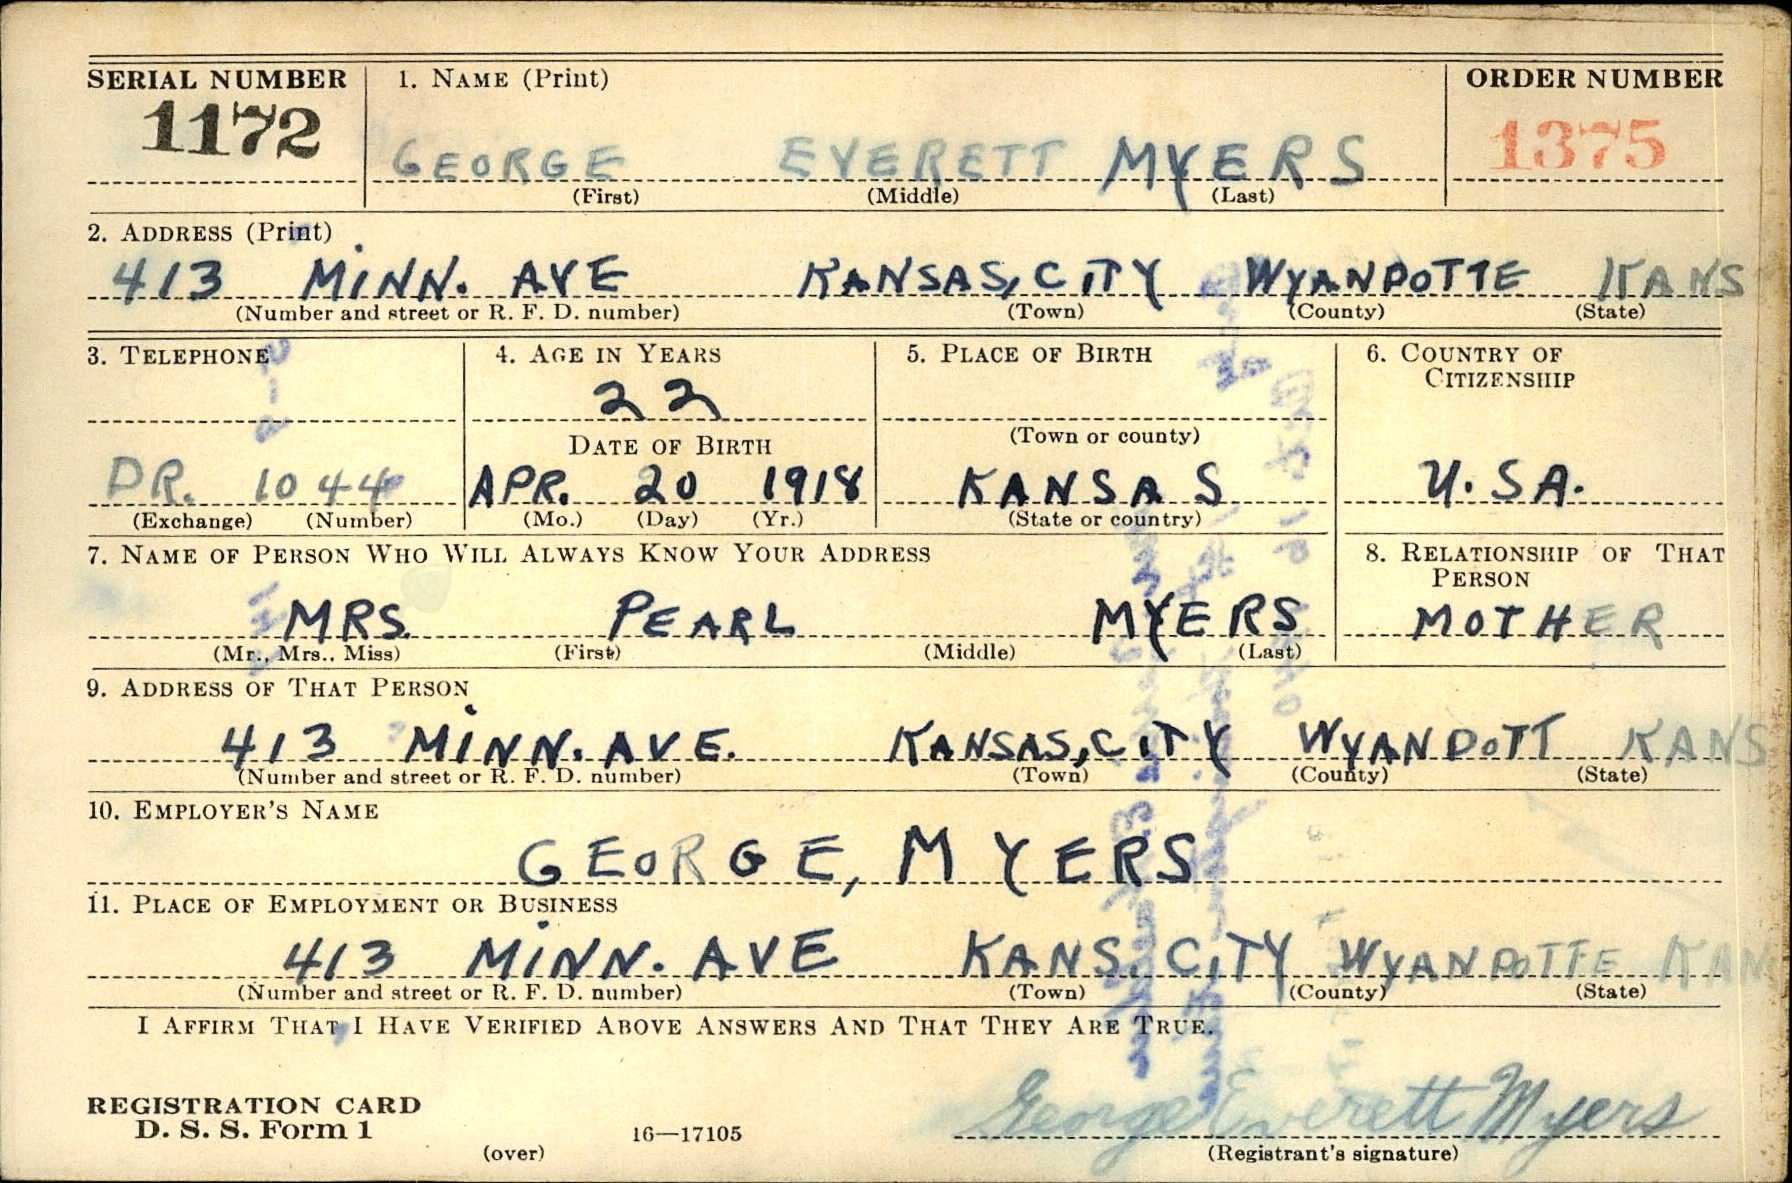 SERIAL NUMBER 1. NAME (Print) ORDER NUMBER
1172 GEORGE EVERETT MYERS 1375
(First) (Middle) (Last)
2. ADDRESS (Print)
413 MINN. AVE KANSAS, CITY WYANDOTTE KANS
(Number and street or R. F. D. number) (Town) (County) (State)
3. TELEPHONE 4. AGE IN YEARS 5. PLACE OF BIRTH 6. COUNTRY OF
CITIZENSHIP
22
DATE OF BIRTH (Town or county)
DR. 1044 APR. 20 1918 KANSAS U.SA.
(Exchange) (Number) (Mo.) (Day) (Yr.) (State or country)
7. NAME OF PERSON WHO WILL ALWAYS KNOW YOUR ADDRESS 8. RELATIONSHIP OF THAT
PERSON
MRS. PEARL MYERS MOTHER
(Mr., Mrs., Miss) (First) (Middle) (Last)
9. ADDRESS OF THAT PERSON
413 MINN. AVE. KANSAS, CITY WYANDOTT KANS
(Number and street or R. F. D. number) (Town) (County) (State)
10. EMPLOYER'S NAME
GEORGE, MYERS
11. PLACE OF EMPLOYMENT OR BUSINESS
413 MINN. AVE KANS. CITY WYANDOTTE KAN
(Number and street or R. F. D. number) (Town) (County) (State)
I AFFIRM THAT I HAVE VERIFIED ABOVE ANSWERS AND THAT THEY ARE TRUE.
REGISTRATION CARD George Everett Myers
D. S. S. Form 1 16—17105
(over) (Registrant's signature)